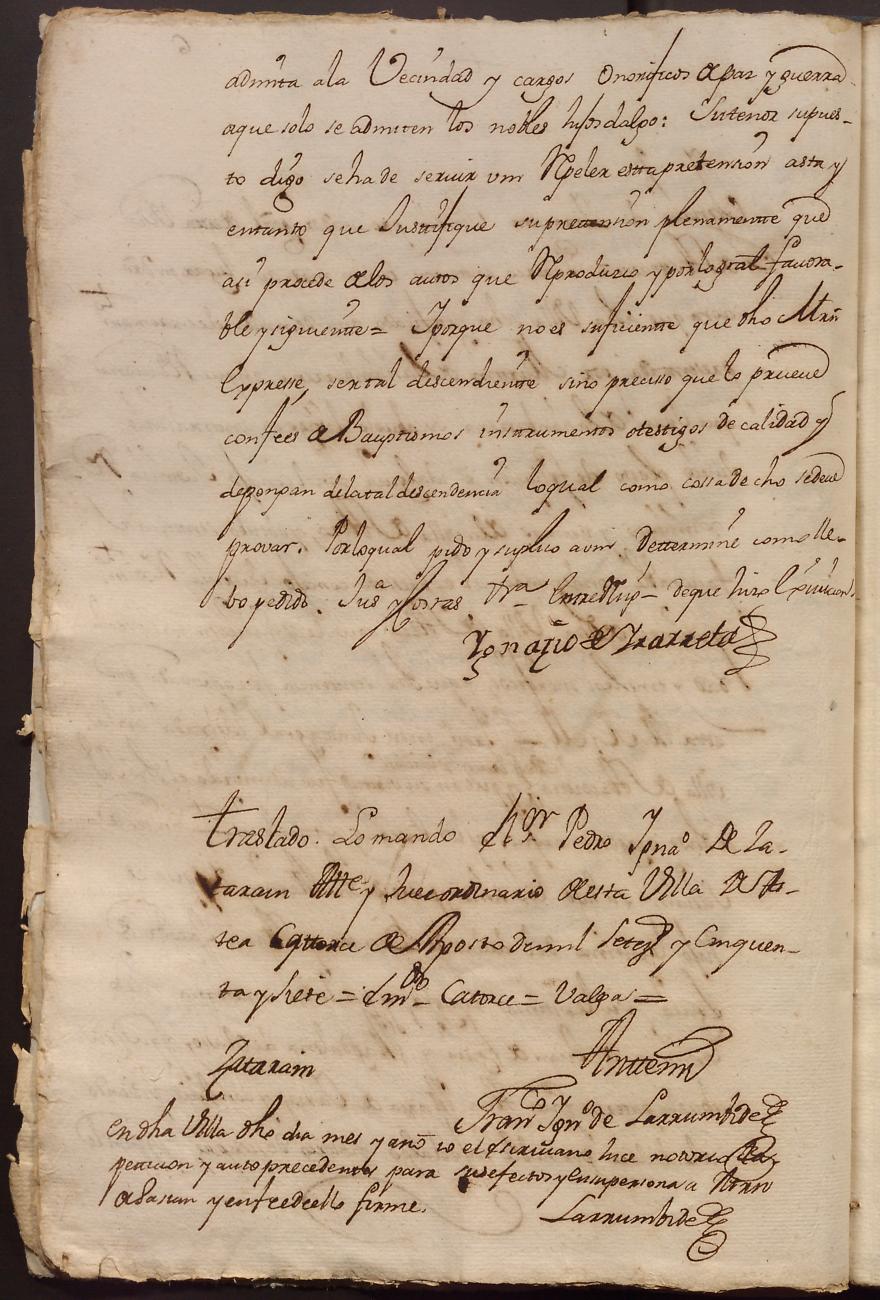 admita ala Vecindad y cargos onorificos de paz y guerra
aque solo se admiten los nobles hijosdalgo: Sutenor supues-
to digo seha de servir vm Repeler esta pretension asta y
entanto que Justifique supretension plenamente que
asi procede de los autos que Reproduzco y porlo gral favora-
ble ysiguiente= Yporque noes suficiente que dho Mrn
Expresse, sertal descendiente sino preciso que lo prueve
confees de Bauptismos instrumentos otestigos de calidad y
depongan delatal descendencia loqual como cossa de cho sedeve
provar. Porloqual pido y suplico avm Dettermine como lle-
bo pedido. Jusa y Costas
Ygnazio de Yrarreta
Traslado. Lo mando el Sor Pedro Ygnao de Za-
tarain Altte y Juez ordinario de esta Villa de As-
tea Cattorce de Agosto demil Setezs y Cinquen-
ta y Siete = Emdo Catorce = Valga =
Zatarain
Anttemi
Franco Igno de Larrumbide
En dha Villa dho dia mes y año io el Escriuano hice notorio
peticion y auto precedentes para sus efectos y ensupersona a Mrn
de yenfeedeello firme.
Larrumbide